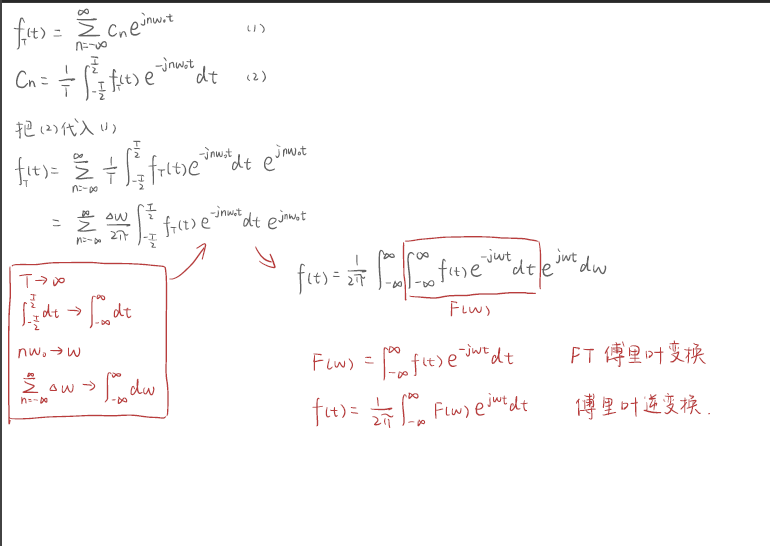 f_T(t) = ∑_{n=-∞}^{∞} C_n e^{jnw₀t} (1)
C_n = 1/T ∫_{-T/2}^{T/2} f_T(t) e^{-jnw₀t} dt (2)
把(2)代入(1)
f_T(t) = ∑_{n=-∞}^{∞} 1/T ∫_{-T/2}^{T/2} f_T(t) e^{-jnw₀t} dt e^{jnw₀t}
= ∑_{n=-∞}^{∞} Δw/2π ∫_{-T/2}^{T/2} f_T(t) e^{-jnw₀t} dt e^{jnw₀t}
T → ∞
∫_{-T/2}^{T/2} dt → ∫_{-∞}^{∞} dt
nw₀ → w
∑_{n=-∞}^{∞} Δw → ∫_{-∞}^{∞} dw
f(t) = 1/2π ∫_{-∞}^{∞} ∫_{-∞}^{∞} f(t) e^{-jwt} dt e^{jwt} dw
F(w)
F(w) = ∫_{-∞}^{∞} f(t) e^{-jwt} dt FT 傅里叶变换
f(t) = 1/2π ∫_{-∞}^{∞} F(w) e^{jwt} dt 傅里叶逆变换.